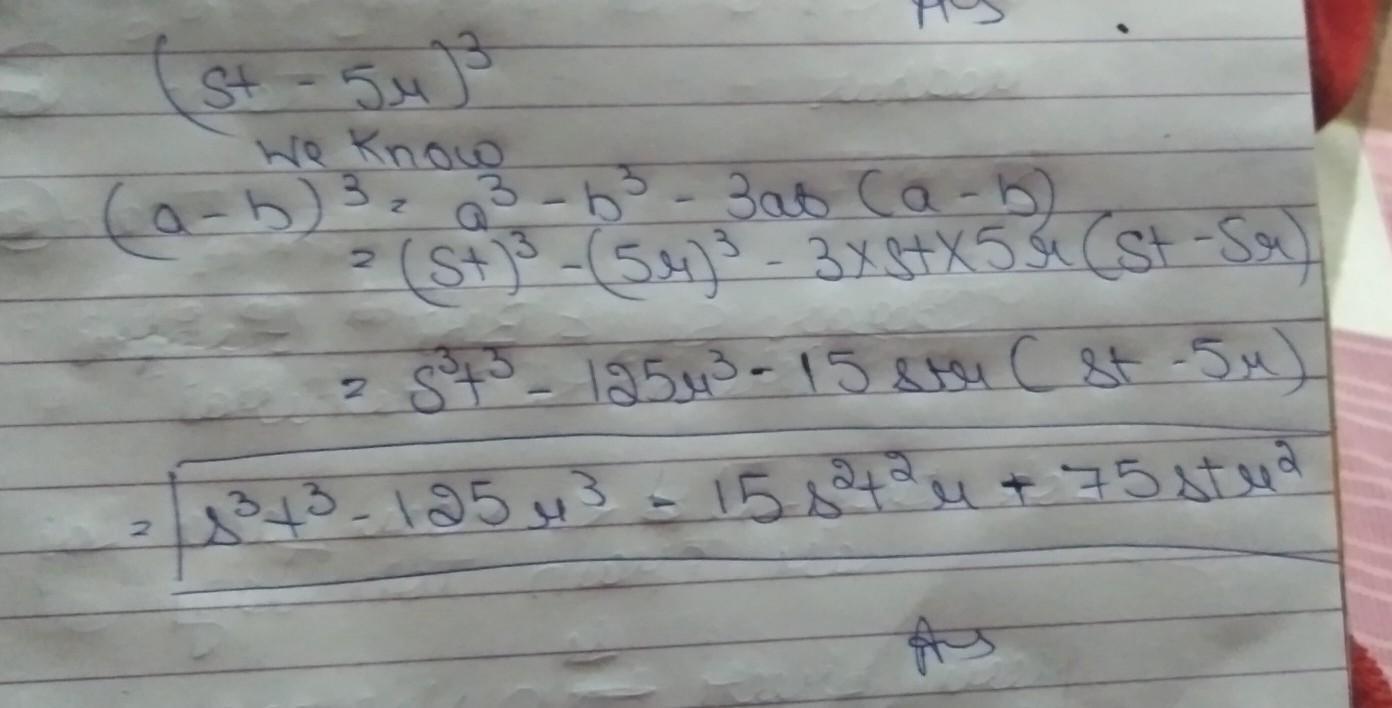 Ans
(st - 5r)³
We Know
(a - b)³ = a³ - b³ - 3ab (a - b)
= (st)³ - (5r)³ - 3×st×5r (st - 5r)
= s³t³ - 125r³ - 15 str ( st - 5r)
= s³t³ - 125 r³ - 15 s²t²r + 75 str²
Ans